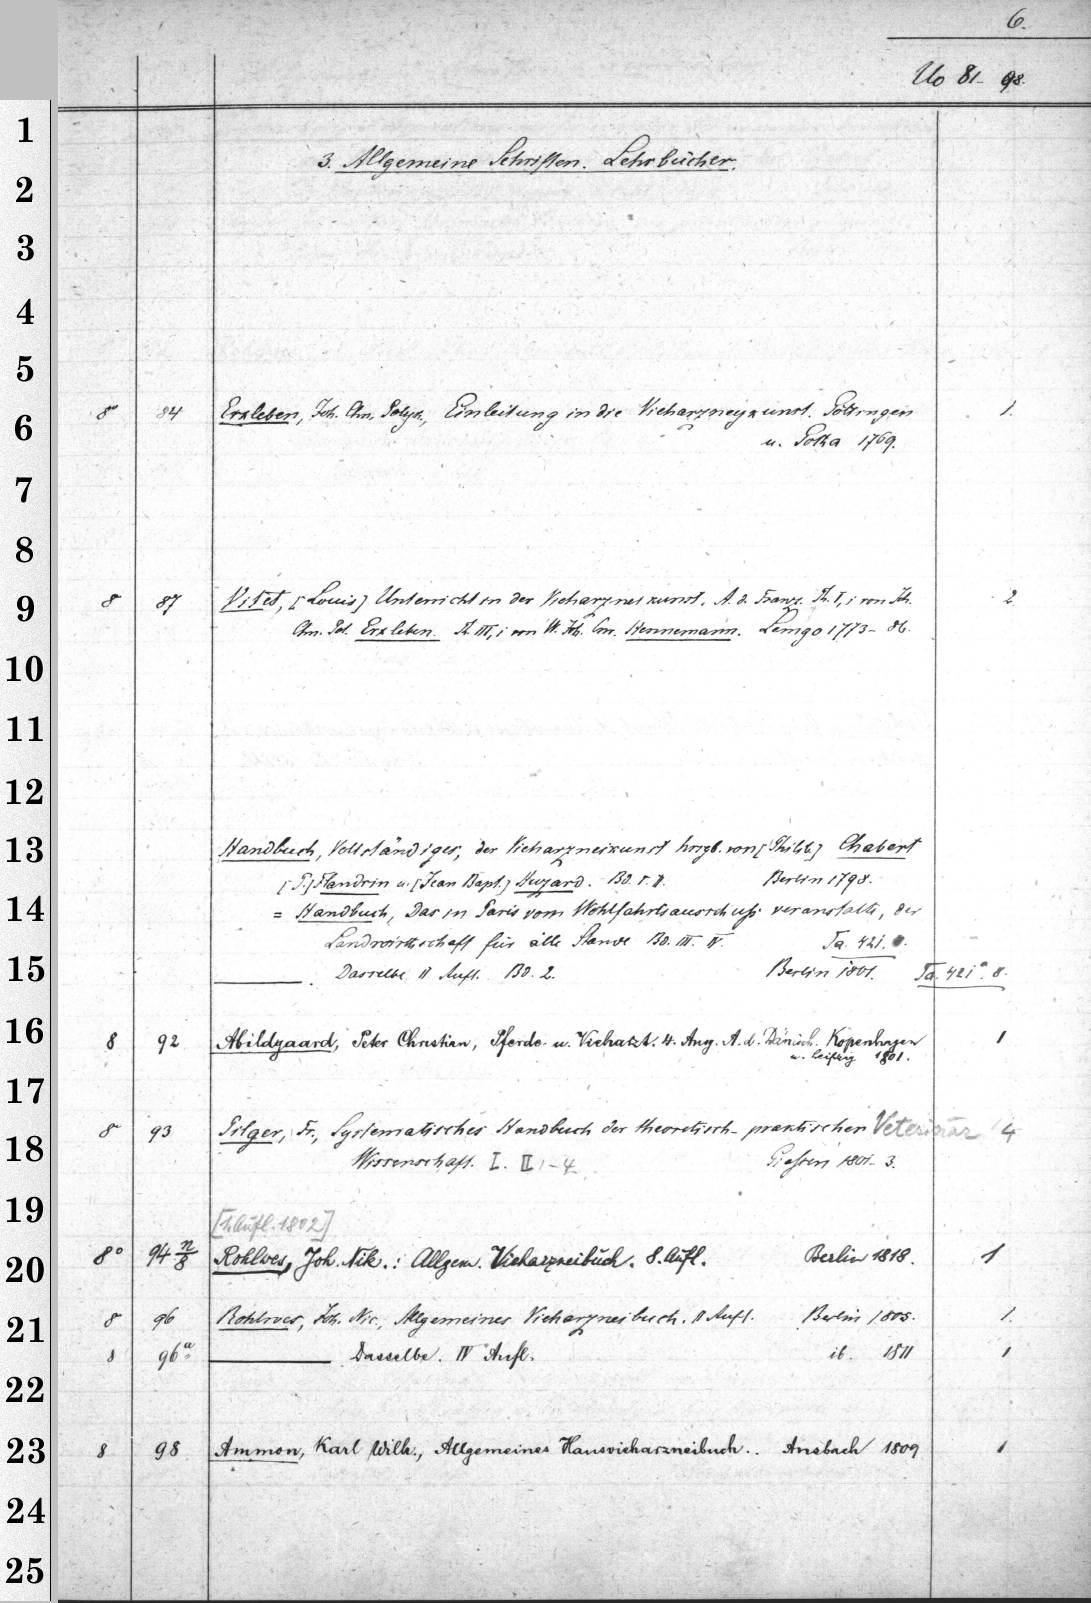 6.
Uo 81-98.
1
3. Allgemeine Schriften. Lehrbücher.
2
3
4
5
8° 84 Erxleben, Joh. Chn. Polyk., Einleitung in die Vieharzneykunst. Göttingen 1.
6
u. Gotha 1769.
7
8
8 87 Vitet, [Louis] Unterricht in der Vieharzneikunst. A. d. Franz. Th. I, i von Joh. 2
9
Chn. Pol. Erxleben. Th. III, i von W. Joh. Cnr. Hennemann. Lemgo 1773-86.
10
11
12
13 Handbuch, Vollständiges, der Vieharzneikunst hrsgb. von [Philib.] Chabert
[P.] Flandrin u. [Jean Bapt.] Huzard. Bd. I. II. Berlin 1798.
14 = Handbuch, Das in Paris vom Wohlfahrtsausschuß veranstalte, der
Landwirthschaft für alle Stände Bd. III. IV. Ta. 421. 8.
15 Dasselbe II Aufl. Bd. 2. Berlin 1801. Ta. 421ª. 8.
16 8 92 Abildgaard, Peter Christian, Pferde- u. Viehatzt. 4. Ang. A. d. Dänisch. Kopenhagen 1
u. Leipzig 1801.
17
8 93 Pilger, Fr., Systematisches Handbuch der theoretisch-praktischen Veterinär 4
18
Wissenschaft. I. II 1-4. Giessen 1801-3.
19
[1. Aufl. 1802]
20 8° 94 n/8 Rohlwes, Joh. Nik.: Allgem. Vieharzneibuch. 8. Aufl. Berlin 1818. 1
21 8 96 Rohlwes, Joh. Nic., Allgemeines Vieharzneibuch. II Aufl. Berlin 1805. 1.
8 96ª Dasselbe. IV Aufl. ib. 1811 1
22
23 8 98 Ammon, Karl Wilh., Allgemeines Hausvieharzneibuch. Ansbach 1809 1
24
25